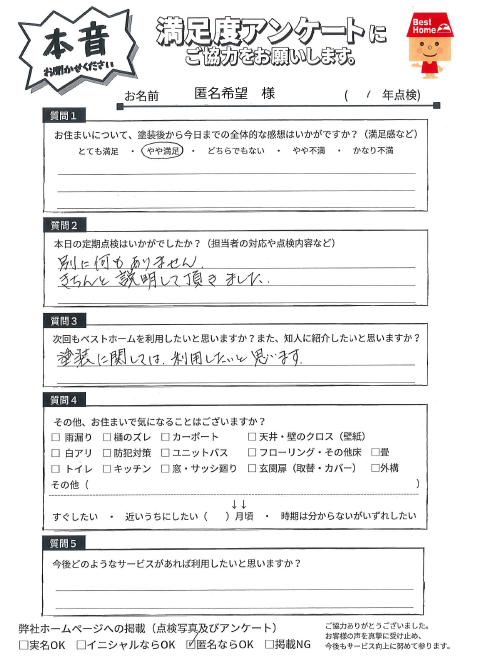 本音
お聞かせください
満足度アンケートに
ご協力をお願いします。
Best
Home
お名前 匿名希望 様 ( 1 年点検)
質問1
お住まいについて、塗装後から今日までの全体的な感想はいかがですか？（満足感など）
とても満足 ・ やや満足 ・ どちらでもない ・ やや不満 ・ かなり不満
質問2
本日の定期点検はいかがでしたか？（担当者の対応や点検内容など）
別に何もありません。
きちんと説明して頂きました。
質問3
次回もベストホームを利用したいと思いますか？また、知人に紹介したいと思いますか？
塗装に関しては、利用したいと思います。
質問4
その他、お住まいで気になることはございますか？
□ 雨漏り □ 樋のズレ □ カーポート □ 天井・壁のクロス（壁紙）
□ 白アリ □ 防犯対策 □ ユニットバス □ フローリング・その他床 □畳
□ トイレ □ キッチン □ 窓・サッシ廻り □ 玄関扉（取替・カバー） □外構
その他（ ）
↓↓
すぐしたい ・ 近いうちにしたい（ ）月頃 ・ 時期は分からないがいずれしたい
質問5
今後どのようなサービスがあれば利用したいと思いますか？
弊社ホームページへの掲載（点検写真及びアンケート）
□実名OK □イニシャルならOK ☑匿名ならOK □掲載NG
ご協力ありがとうございました。
お客様の声を真摯に受け止め、
今後もサービス向上に努めて参ります。